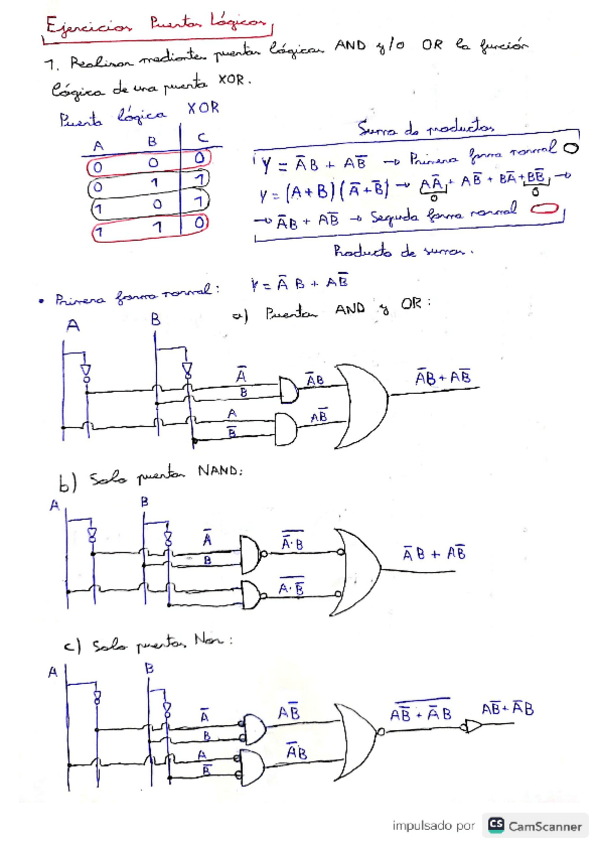 Ejercicios Puertas Lógicas
1. Realizar mediante puertas lógicas AND y/o OR la función
lógica de una puerta XOR.
Puerta lógica XOR
A B C
0 0 0
0 1 1
1 0 1
1 1 0
Suma de productos
Y = A̅B + AB̅ → Primera forma normal
Y = (A+B)(A̅+B̅) → AA̅ + AB̅ + BA̅ + BB̅ →
0 0
→ A̅B + AB̅ → Segunda forma normal
Producto de sumas.
• Primera forma normal: Y = A̅B + AB̅
a) Puertas AND y OR:
A B
A̅
B
A̅B
A
B̅
AB̅
A̅B + AB̅
b) Solo puertas NAND:
A B
A̅
B
A̅·B
A·B̅
A̅B + AB̅
c) Solo puertas Nor:
A B
A̅
B
AB̅
A
B̅
A̅B
AB̅ + A̅B
AB̅ + A̅B
impulsado por CS CamScanner